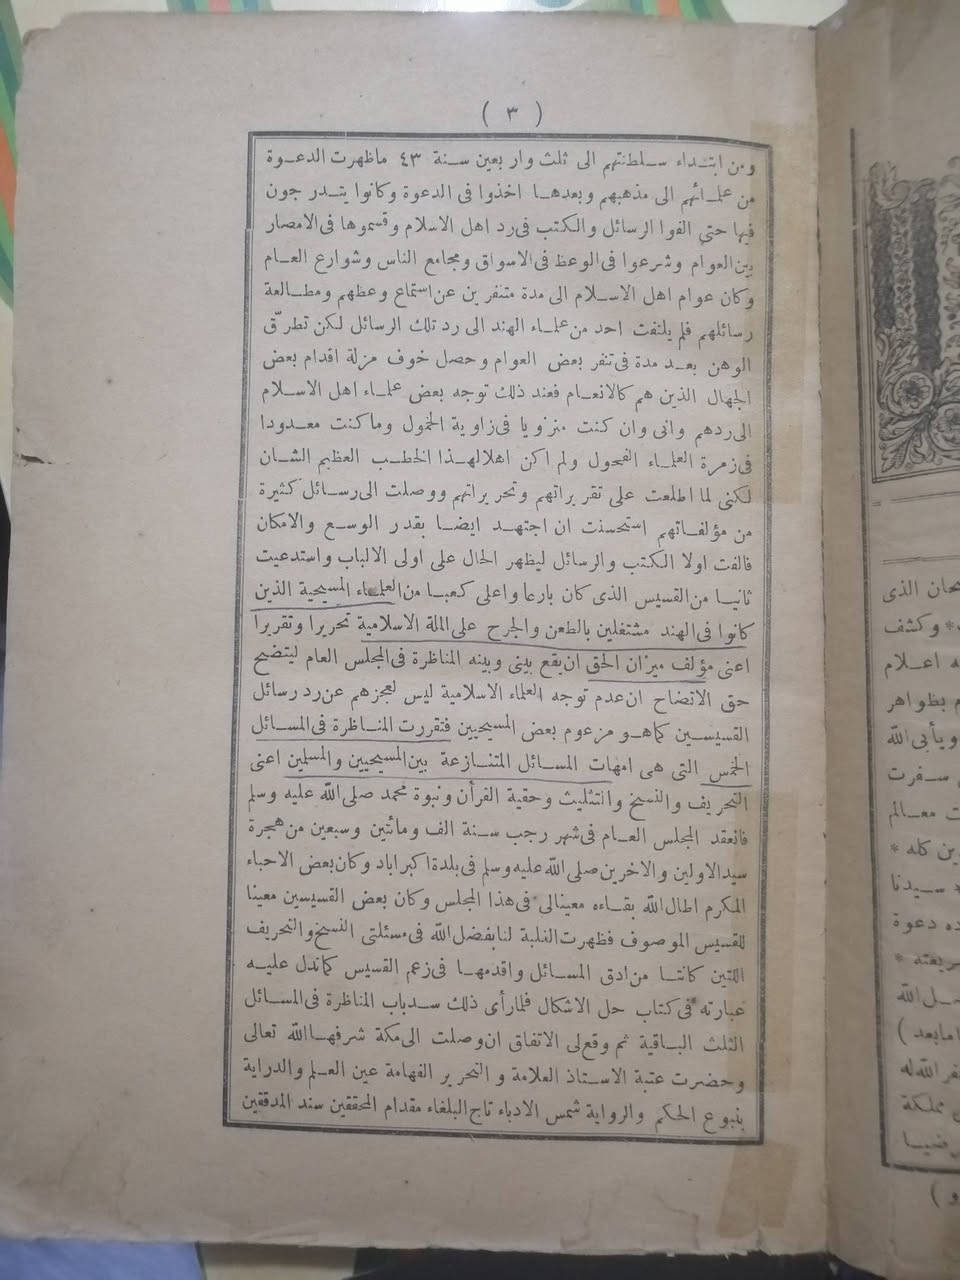 ( ٣ )
ومن ابتداء سلطنتهم الى ثلث واربعين سنة ٤٣ ماظهرت الدعوة
من علمائهم الى مذهبهم وبعدها اخذوا فى الدعوة وكانوا يتدرجون
فيها حتى الفوا الرسائل والكتب فى رد اهل الاسلام وقسموها فى الامصار
بين العوام وشرعوا فى الوعظ فى الاسواق ومجامع الناس وشوارع العام
وكان عوام اهل الاسلام الى مدة متنفرين عن استماع وعظهم ومطالعة
رسائلهم فلم يلتفت احد من علماء الهند الى رد تلك الرسائل لكن تطرّق
الوهن بعد مدة فى تنفر بعض العوام وحصل خوف مزلة اقدام بعض
الجهال الذين هم كالانعام فعند ذلك توجه بعض علماء اهل الاسلام
الى ردهم وانى وان كنت منزويا فى زاوية الخمول وماكنت معدودا
فى زمرة العلماء الفحول ولم اكن اهلا لهذا الخطب العظيم الشان
لكنى لما اطلعت على تقريراتهم وتحريراتهم ووصلت الى رسائل كثيرة
من مؤلفاتهم استحسنت ان اجتهد ايضا بقدر الوسع والامكان
فالفت اولا الكتب والرسائل ليظهر الحال على اولى الالباب واستدعيت
ثانيا من القسيس الذى كان بارعا واعلى كعبا من العلماء المسيحية الذين
كانوا فى الهند مشتغلين بالطعن والجرح على الملة الاسلامية تحريرا وتقريرا
اعنى مؤلف ميزان الحق ان يقع بينى وبينه المناظرة فى المجلس العام ليتضح
حق الاتضاح ان عدم توجه العلماء الاسلامية ليس لعجزهم عن رد رسائل
القسيسين كما هو مزعوم بعض المسيحيين فتقررت المناظرة فى المسائل
الخمس التى هى امهات المسائل المتنازعة بين المسيحيين والمسلين اعنى
التحريف والنسخ والتثليث وحقية القرأن ونبوة محمد صلى الله عليه وسلم
فانعقد المجلس العام فى شهر رجب سنة الف ومائتين وسبعين من هجرة
سيد الاولين والاخرين صلى الله عليه وسلم فى بلدة اكبراباد وكان بعض الاحباء
المكرم اطال الله بقاءه معينالى فى هذا المجلس وكان بعض القسيسين معينا
للقسيس الموصوف فظهرت الغلبة لنا بفضل الله فى مسئلتى النسخ والتحريف
اللتين كانتا من ادق المسائل واقدمها فى زعم القسيس كما تدل عليه
عبارته فى كتاب حل الاشكال فلما رأى ذلك سد باب المناظرة فى المسائل
الثلث الباقية ثم وقع لى الاتفاق ان وصلت الى مكة شرفها الله تعالى
وحضرت عتبة الاستاذ العلامة والنحرير الفهامة عين العلم والدراية
ينبوع الحكم والرواية شمس الادباء تاج البلغاء مقدام المحققين سند المدققين
حان الذى
* وكشف
ه اعلام
م بظواهر
ويأبى الله
سفرت
ت معالم
ين كله *
* سيدنا
ده دعوة
ريعته *
ل الله
امابعد )
فر الله له
مملكة